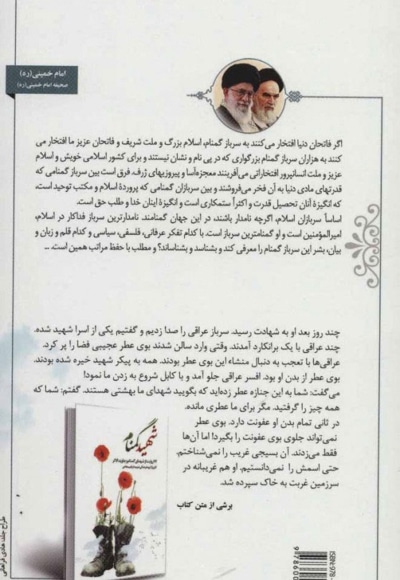 امام خمینی(ره)
صحیفه امام خمینی(ره)
اگر فاتحان دنیا افتخار می‌کنند به سرباز گمنام، اسلام بزرگ و ملت شریف و فاتحان عزیز ما افتخار می
کنند به هزاران سرباز گمنام بزرگواری که در پی نام و نشان نیستند و برای کشور اسلامی خویش و اسلام
عزیز و ملت انسانپرور افتخاراتی می‌آفرینند معجزه‌آسا و پیروزیهای ژرف. فرق است بین سرباز گمنامی که
قدرتهای مادی دنیا به آن فخر می‌فروشند و بین سربازان گمنامی که پرورده اسلام و مکتب توحید است،
که انگیزه آنان تحصیل قدرت و اکثراً ستمکاری است و انگیزه اینان خدا و طلب حق است.
اساساً سربازان اسلام، اگرچه نامدار باشند، در این جهان گمنامند. نامدارترین سرباز فداکار در اسلام،
امیرالمؤمنین است و او گمنامترین سرباز است. با کدام تفکر عرفانی، فلسفی، سیاسی و کدام قلم و زبان و
بیان، بشر این سرباز گمنام را معرفی کند و بشناسد و بشناساند؟ و مطلب با حفظ مراتب همین است. ...
چند روز بعد او به شهادت رسید. سرباز عراقی را صدا زدیم و گفتیم یکی از اسرا شهید شده.
چند عراقی با یک برانکارد آمدند. وقتی وارد سالن شدند بوی عطر عجیبی فضا را پر کرد.
عراقی‌ها با تعجب به دنبال منشاء این بوی عطر بودند. همه به پیکر شهید خیره شده بودند.
بوی عطر از بدن او بود. افسر عراقی جلو آمد و با کابل شروع به زدن ما نمود!
می‌گفت: شما به این جنازه عطر زده‌اید که بگویید شهدای ما بهشتی هستند. گفتم: شما که
همه چیز را گرفتید. مگر برای ما عطری مانده.
در ثانی تمام بدن او عفونت دارد. بوی عطر
نمی‌تواند جلوی بوی عفونت را بگیرد! اما آن‌ها
فقط می‌زدند. آن بسیجی غریب را نمی‌شناختم.
حتی اسمش را نمی‌دانستیم. او هم غریبانه در
سرزمین غربت به خاک سپرده شد.
برشی از متن کتاب
شهید گمنام
ISBN:978-
9786000